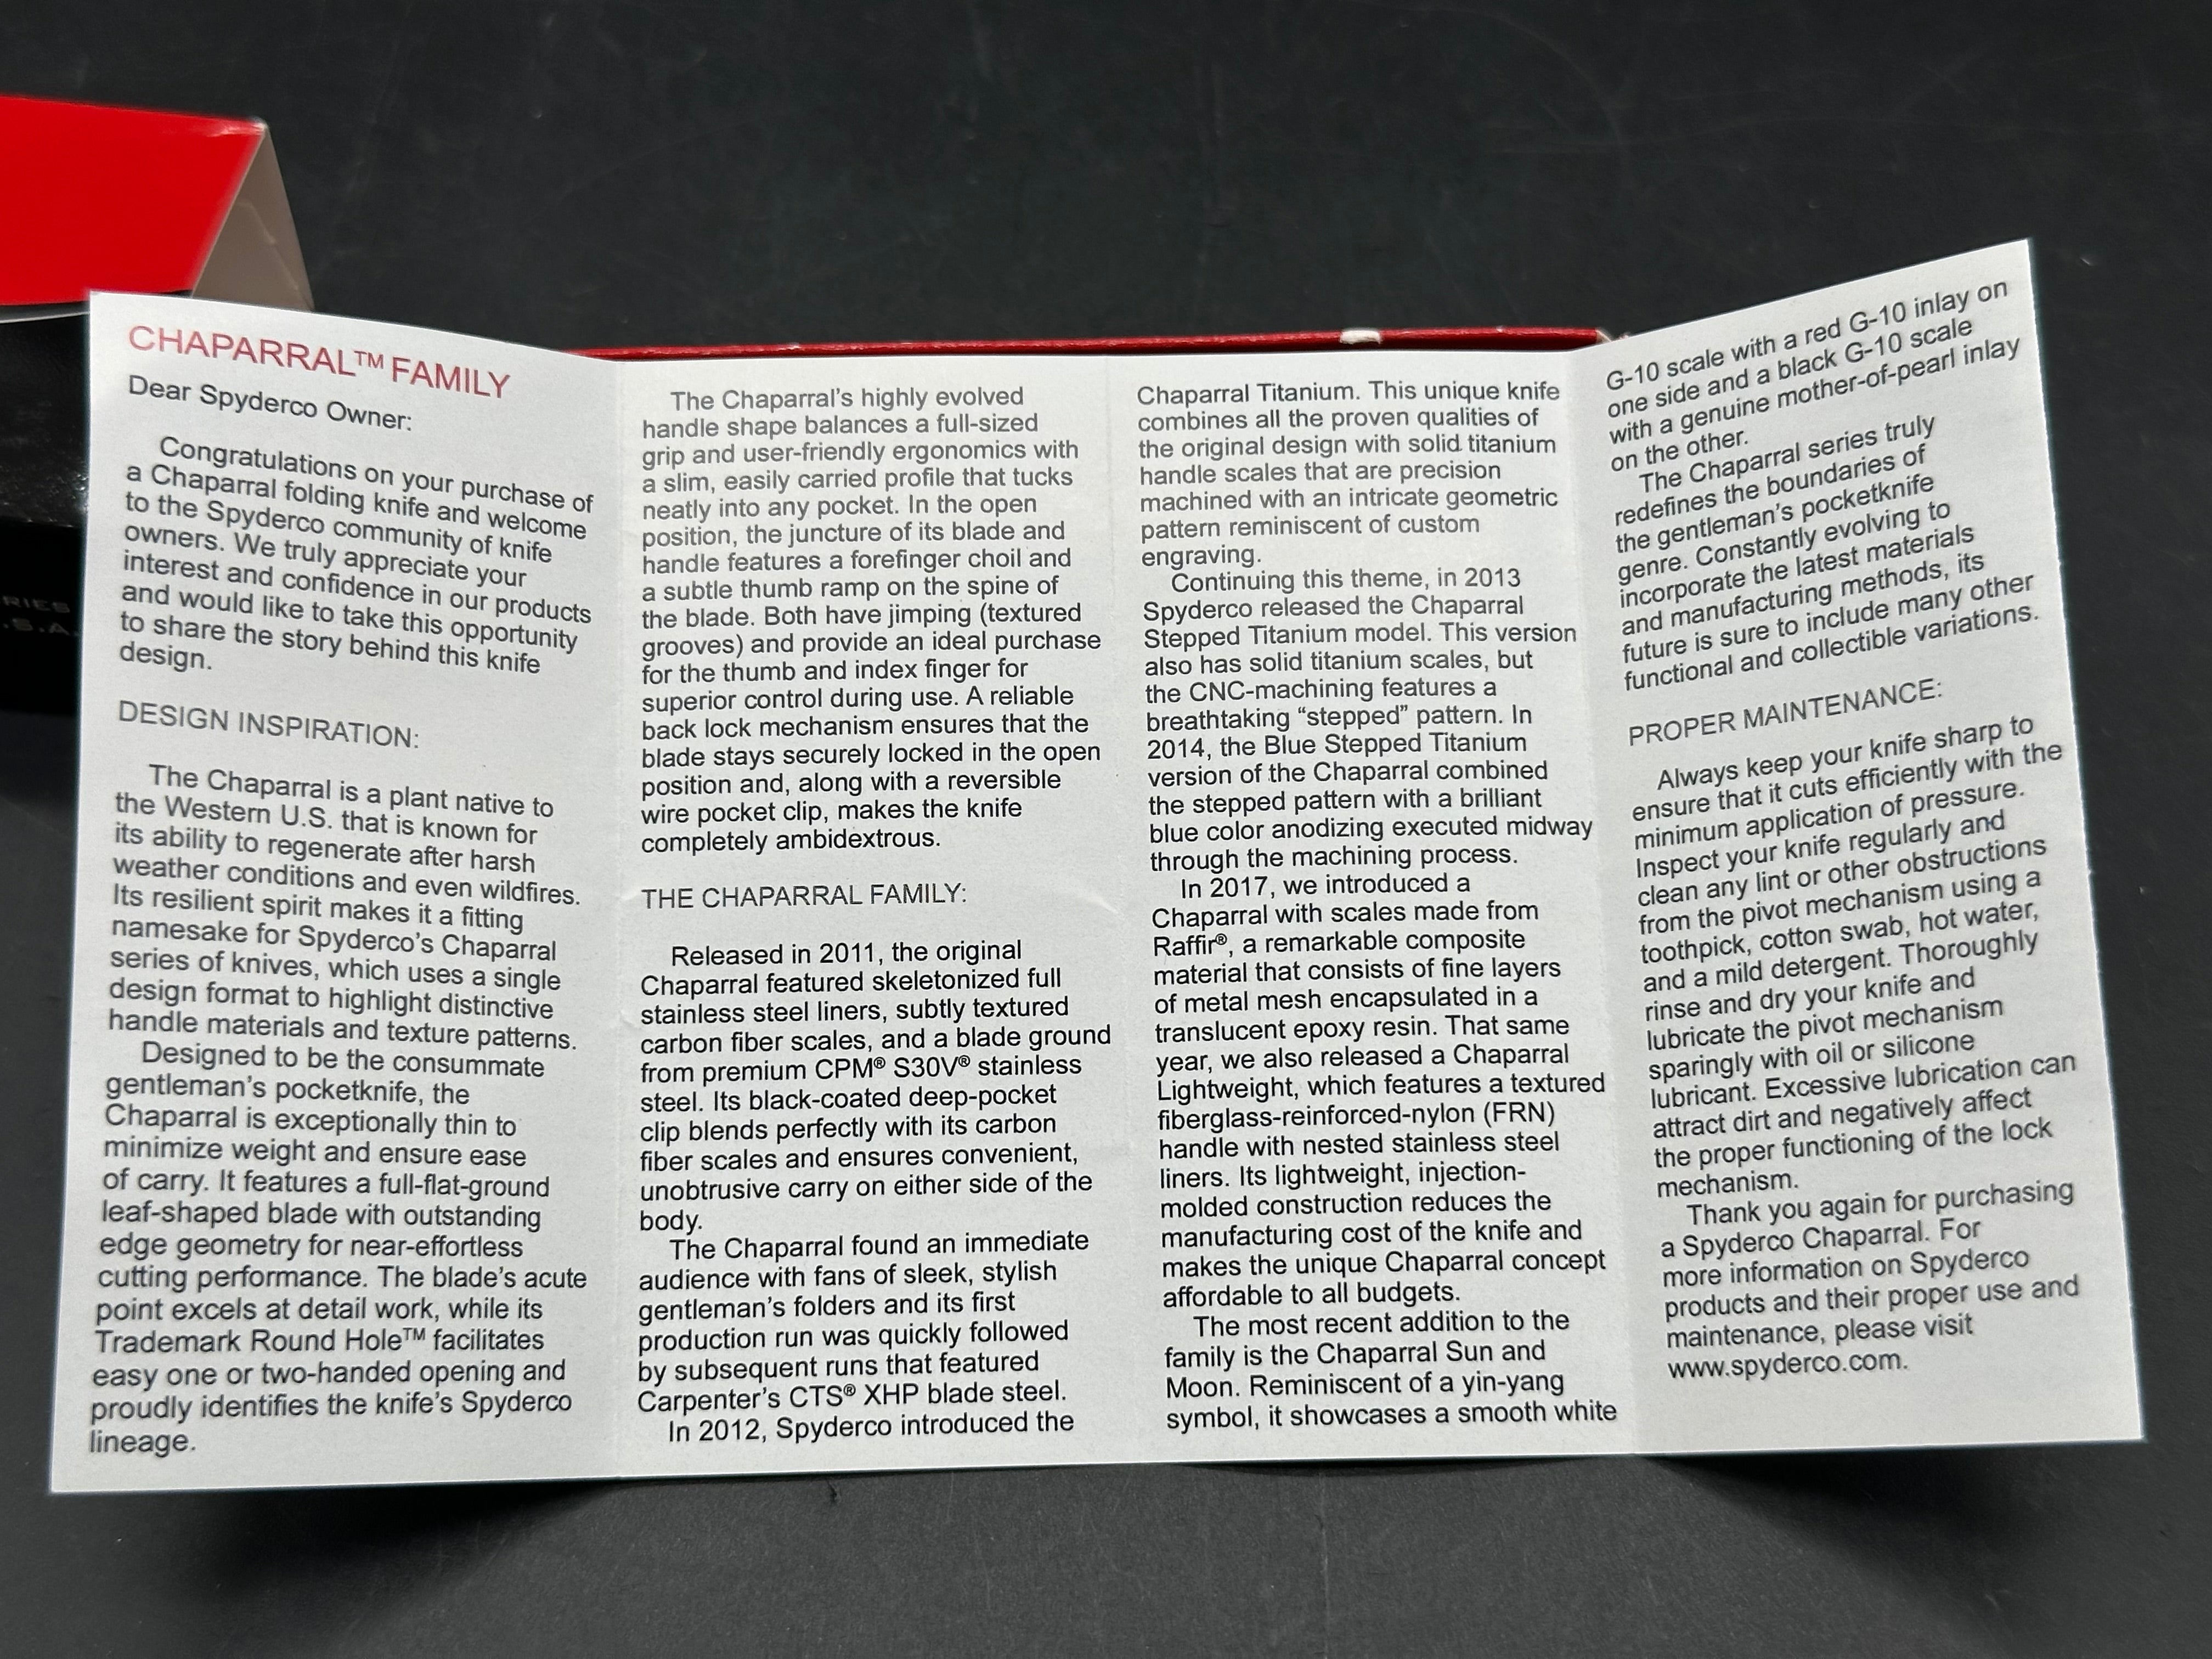 CHAPARRAL™ FAMILY
Dear Spyderco Owner:
Congratulations on your purchase of
a Chaparral folding knife and welcome
to the Spyderco community of knife
owners. We truly appreciate your
interest and confidence in our products
and would like to take this opportunity
to share the story behind this knife
design.
DESIGN INSPIRATION:
The Chaparral is a plant native to
the Western U.S. that is known for
its ability to regenerate after harsh
weather conditions and even wildfires.
Its resilient spirit makes it a fitting
namesake for Spyderco's Chaparral
series of knives, which uses a single
design format to highlight distinctive
handle materials and texture patterns.
Designed to be the consummate
gentleman's pocketknife, the
Chaparral is exceptionally thin to
minimize weight and ensure ease
of carry. It features a full-flat-ground
leaf-shaped blade with outstanding
edge geometry for near-effortless
cutting performance. The blade's acute
point excels at detail work, while its
Trademark Round Hole™ facilitates
easy one or two-handed opening and
proudly identifies the knife's Spyderco
lineage.
The Chaparral's highly evolved
handle shape balances a full-sized
grip and user-friendly ergonomics with
a slim, easily carried profile that tucks
neatly into any pocket. In the open
position, the juncture of its blade and
handle features a forefinger choil and
a subtle thumb ramp on the spine of
the blade. Both have jimping (textured
grooves) and provide an ideal purchase
for the thumb and index finger for
superior control during use. A reliable
back lock mechanism ensures that the
blade stays securely locked in the open
position and, along with a reversible
wire pocket clip, makes the knife
completely ambidextrous.
THE CHAPARRAL FAMILY:
Released in 2011, the original
Chaparral featured skeletonized full
stainless steel liners, subtly textured
carbon fiber scales, and a blade ground
from premium CPM® S30V® stainless
steel. Its black-coated deep-pocket
clip blends perfectly with its carbon
fiber scales and ensures convenient,
unobtrusive carry on either side of the
body.
The Chaparral found an immediate
audience with fans of sleek, stylish
gentleman's folders and its first
production run was quickly followed
by subsequent runs that featured
Carpenter's CTS® XHP blade steel.
In 2012, Spyderco introduced the
Chaparral Titanium. This unique knife
combines all the proven qualities of
the original design with solid titanium
handle scales that are precision
machined with an intricate geometric
pattern reminiscent of custom
engraving.
Continuing this theme, in 2013
Spyderco released the Chaparral
Stepped Titanium model. This version
also has solid titanium scales, but
the CNC-machining features a
breathtaking "stepped" pattern. In
2014, the Blue Stepped Titanium
version of the Chaparral combined
the stepped pattern with a brilliant
blue color anodizing executed midway
through the machining process.
In 2017, we introduced a
Chaparral with scales made from
Raffir®, a remarkable composite
material that consists of fine layers
of metal mesh encapsulated in a
translucent epoxy resin. That same
year, we also released a Chaparral
Lightweight, which features a textured
fiberglass-reinforced-nylon (FRN)
handle with nested stainless steel
liners. Its lightweight, injection-
molded construction reduces the
manufacturing cost of the knife and
makes the unique Chaparral concept
affordable to all budgets.
The most recent addition to the
family is the Chaparral Sun and
Moon. Reminiscent of a yin-yang
symbol, it showcases a smooth white
G-10 scale with a red G-10 inlay on
one side and a black G-10 scale
with a genuine mother-of-pearl inlay
on the other.
The Chaparral series truly
redefines the boundaries of
the gentleman's pocketknife
genre. Constantly evolving to
incorporate the latest materials
and manufacturing methods, its
future is sure to include many other
functional and collectible variations.
PROPER MAINTENANCE:
Always keep your knife sharp to
ensure that it cuts efficiently with the
minimum application of pressure.
Inspect your knife regularly and
clean any lint or other obstructions
from the pivot mechanism using a
toothpick, cotton swab, hot water,
and a mild detergent. Thoroughly
rinse and dry your knife and
lubricate the pivot mechanism
sparingly with oil or silicone
lubricant. Excessive lubrication can
attract dirt and negatively affect
the proper functioning of the lock
mechanism.
Thank you again for purchasing
a Spyderco Chaparral. For
more information on Spyderco
products and their proper use and
maintenance, please visit
www.spyderco.com.